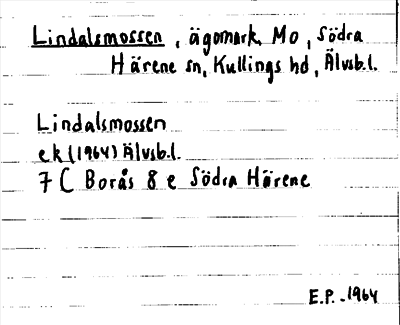 Lindalsmossen, ägomark, Mo, Södra
Härene sn, Kullings hd, Älvsb.l.
Lindalsmossen
ek (1964) Älvsb.l.
7 C Borås 8 e Södra Härene
E.P. -1964